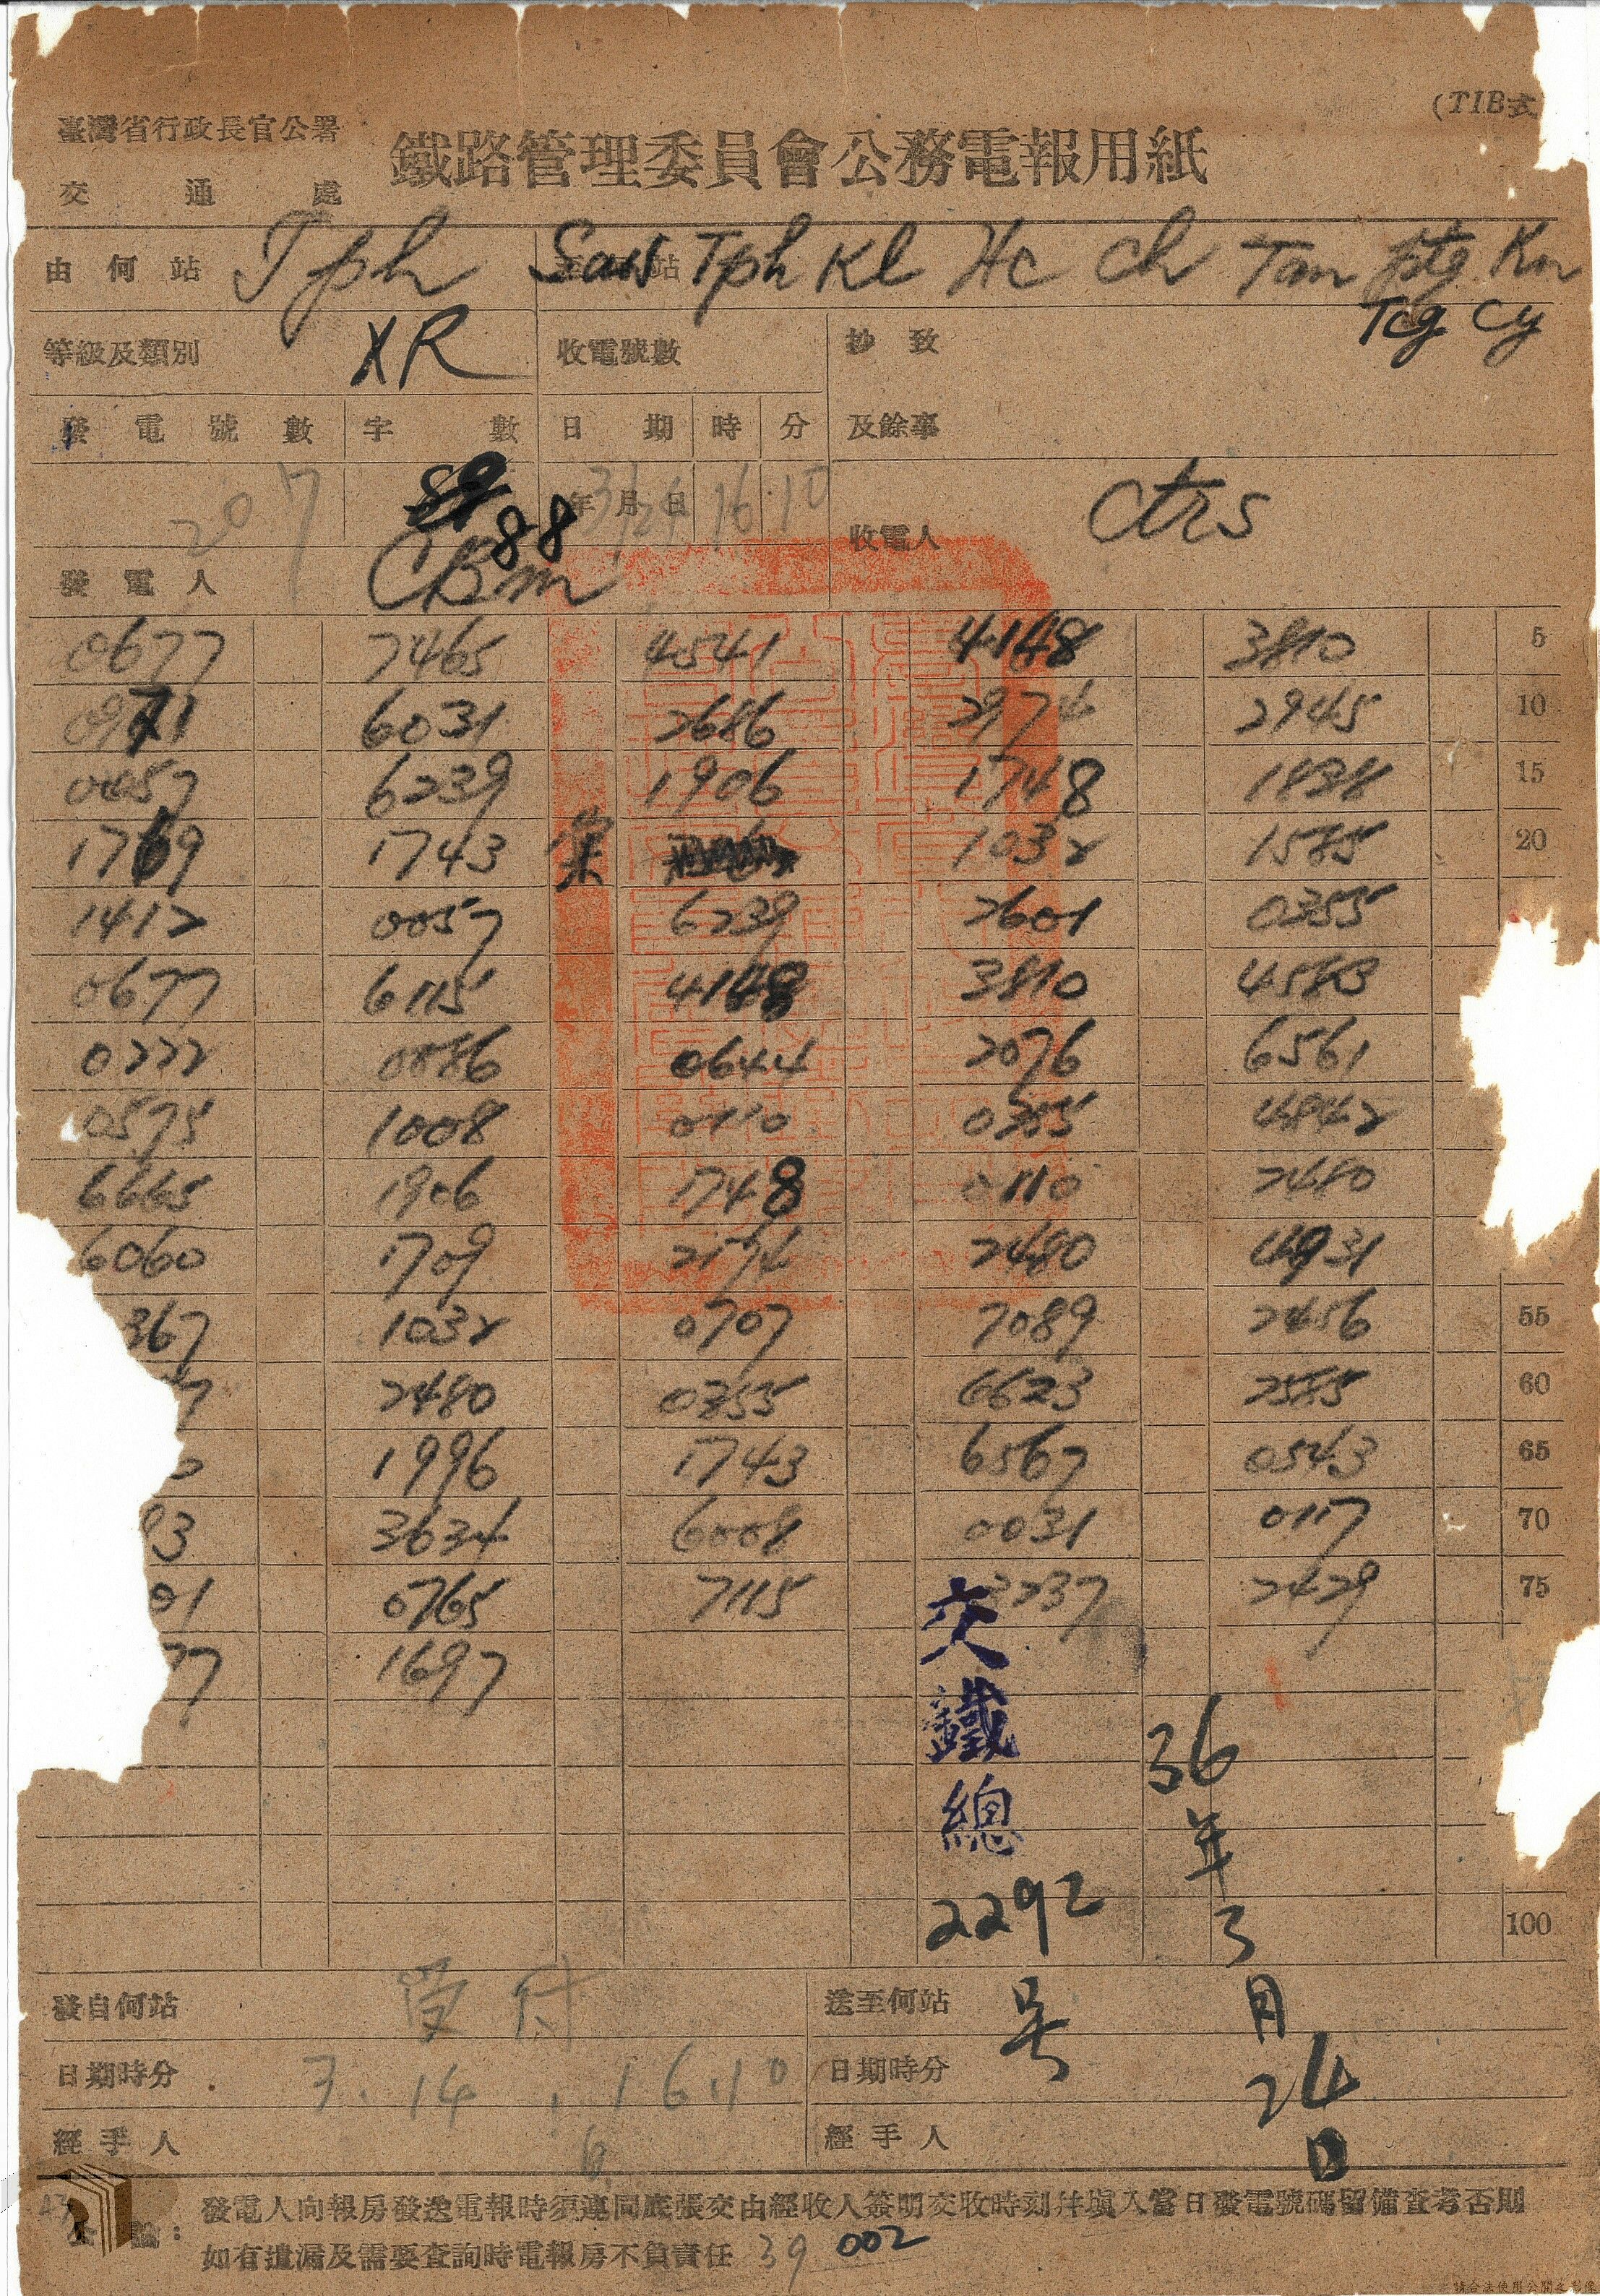 (TIB式
臺灣省行政長官公署
交通處
鐵路管理委員會公務電報用紙
由何站 Tph 至何站 Saw Tph Kl Hc Ch Tan Ptg Kn
Tcg Cy
等級及類別 XR 收電號數 抄致
發電號數 字數 日期 時 分 及餘事
207 88 年3月24日 16 10
收電人 Ctrs
發電人 CBm
0677 7465 4541 4148 3810 5
0971 6031 2686 2974 2945 10
0057 6239 1906 1748 1838 15
1769 1743 1032 1585 20
1412 0057 6239 2601 0355
0677 6115 4148 3810 4583
0222 0086 0644 2076 6561
0575 1008 0110 0355 4842
6665 1906 1748 0110 2480
6060 1709 2174 2480 4931
367 1032 0707 7089 2456 55
7 2480 0355 6623 2585 60
1996 1743 6567 0543 65
93 3634 6008 0031 0117 70
01 0765 7115 2237 2429 75
77 1697
交鐵總
2292
号
36
年
3
月
24
日
100
發自何站 受付 送至何站
日期時分 3.14.16.10 日期時分
經手人 經手人
發電人向報房發送電報時須連同底張交由經收人簽明交收時刻并填入當日發電號碼留備查考否則
如有遺漏及需要查詢時電報房不負責任 39 002
請合法使用公開之影像